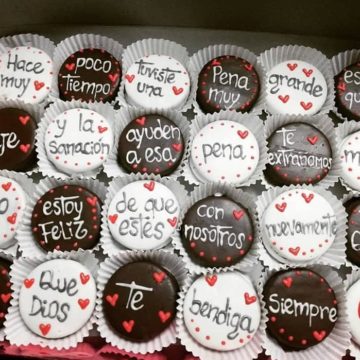 Hace
muy
poco
Tiempo
Tuviste
una
Pena
muy
grande
y la
sanación
ayuden
a esa
pena
te
extrañamos
estoy
Feliz
de que
estés
con
nosotros
nuevamente
Que
Dios
Te
bendiga
Siempre